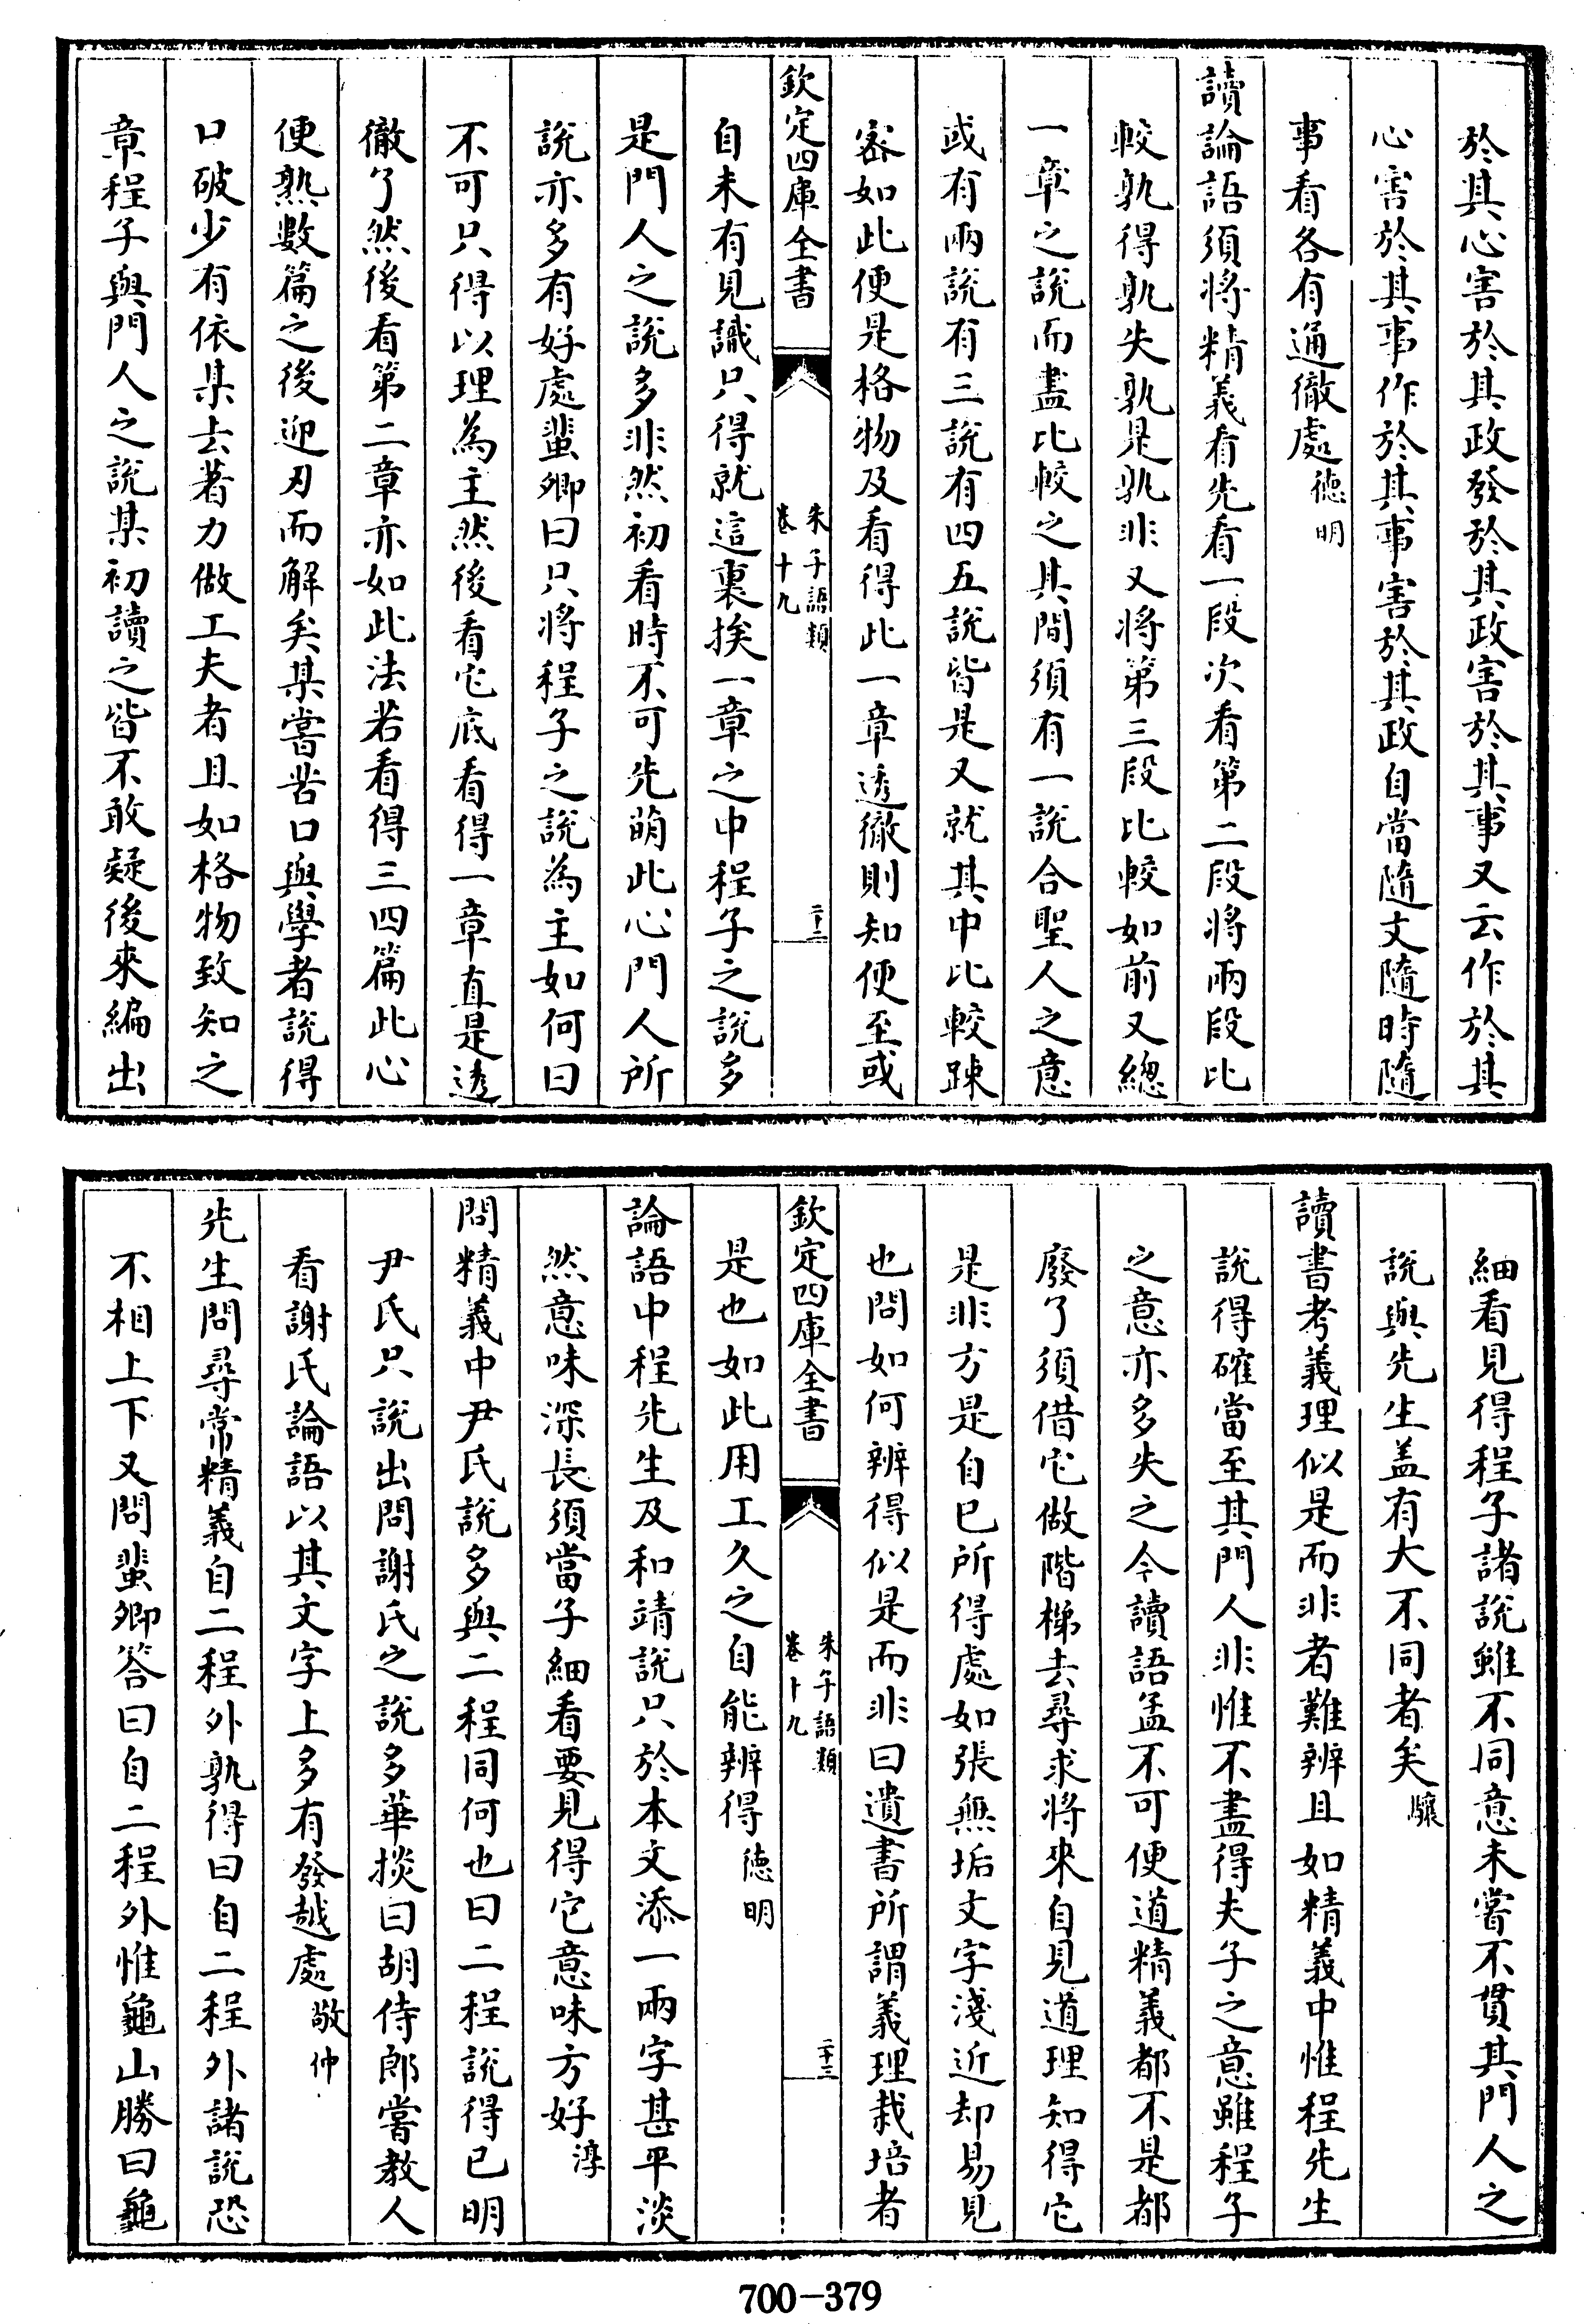 於其心害於其政發於其政害於其事又云作於其
心害於其事作於其事害於其政自當隨文隨時隨
事看各有通徹處德明
讀論語須將精義看先看一段次看第二段將兩段比
較孰得孰失孰是孰非又將第三段比較如前又總
一章之說而盡比較之其間須有一說合聖人之意
或有兩說有三說有四五說皆是又就其中比較疎
宻如此便是格物及看得此一章透徹則知便至或
欽定四庫全書 朱子語類 卷十九 二十二
自未有見識只得就這裏挨一章之中程子之說多
是門人之說多非然初看時不可先萌此心門人所
說亦多有好處蜚卿曰只將程子之說為主如何曰
不可只得以理為主然後看它底看得一章直是透
徹了然後看第二章亦如此法若看得三四篇此心
便熟數篇之後迎刃而解矣某嘗苦口與學者說得
口破少有依某去著力做工夫者且如格物致知之
章程子與門人之說某初讀之皆不敢疑後來編出
細看見得程子諸說雖不同意未嘗不貫其門人之
說與先生盖有大不同者矣驤
讀書考義理似是而非者難辨且如精義中惟程先生
說得確當至其門人非惟不盡得夫子之意雖程子
之意亦多失之今讀語孟不可便道精義都不是都
廢了須借它做階梯去尋求將來自見道理知得它
是非方是自己所得處如張無垢文字淺近却易見
也問如何辨得似是而非曰遺書所謂義理栽培者
欽定四庫全書 朱子語類 卷十九 二十三
是也如此用工久之自能辨得德明
論語中程先生及和靖說只於本文添一兩字甚平淡
然意味深長須當子細看要見得它意味方好淳
問精義中尹氏說多與二程同何也曰二程說得已明
尹氏只說出問謝氏之說多華掞曰胡侍郎嘗教人
看謝氏論語以其文字上多有發越處敬仲
先生問尋常精義自二程外孰得曰自二程外諸說恐
不相上下又問蜚卿答曰自二程外惟龜山勝曰龜
700-379